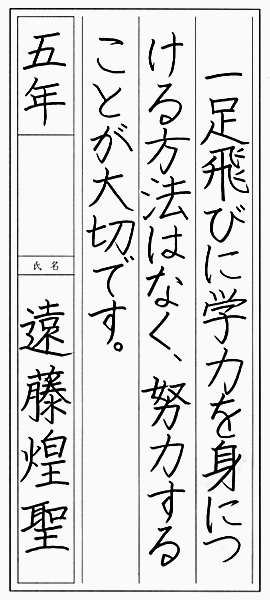 一足飛びに学力を身につ
ける方法はなく、努力する
ことが大切です。
五年
氏名
遠藤煌聖